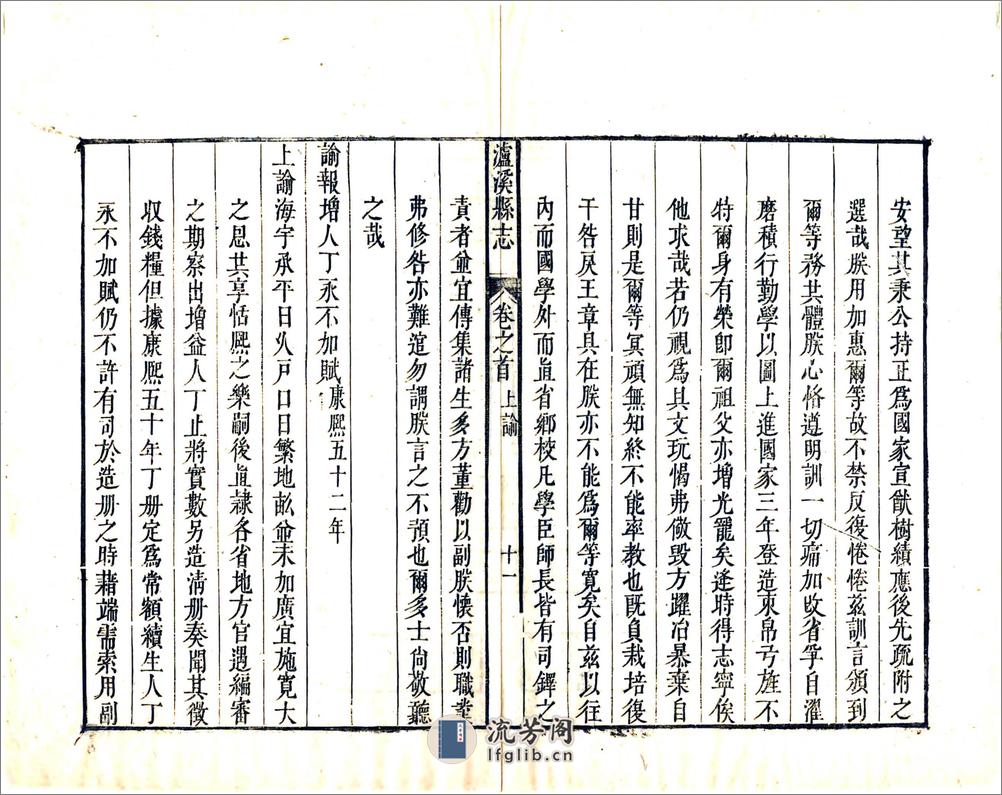 安望其秉公持正爲國家宣猷樹績應後先疏附之
選哉朕用加惠爾等故不禁反復惓惓茲訓言頒到
爾等務共體朕心恪遵明訓一切痛加改省爭自濯
磨積行勤學以圖上進國家三年登造束帛弓旌不
特爾身有榮卽爾祖父亦增光寵矣逢時得志寧俟
他求哉若仍視爲其文玩愒弗儆毀方躍冶暴棄自
甘則是爾等冥頑無知終不能率教也既負栽培復
干咎戾王章具在朕亦不能爲爾等寬矣自茲以往
內而國學外而直省鄉校凡學臣師長皆有司鐸之
瀘溪縣志 卷之首 上諭 十一
責者並宜傳集諸生多方董勸以副朕懷否則職業
弗修咎亦難逭勿謂朕言之不預也爾多士尚敬聽
之哉
諭報增人丁永不加賦康熙五十二年
上諭海宇承平日久戶口日繁地畝並未加廣宜施寬大
之恩共享恬熙之樂嗣後直隸各省地方官遇編審
之期察出增益人丁止將實數另造清册奏聞其徵
收錢糧但據康熙五十年丁册定爲常額續生人丁
永不加賦仍不許有司於造册之時藉端需索用副
流芳阁
lfglib.cn